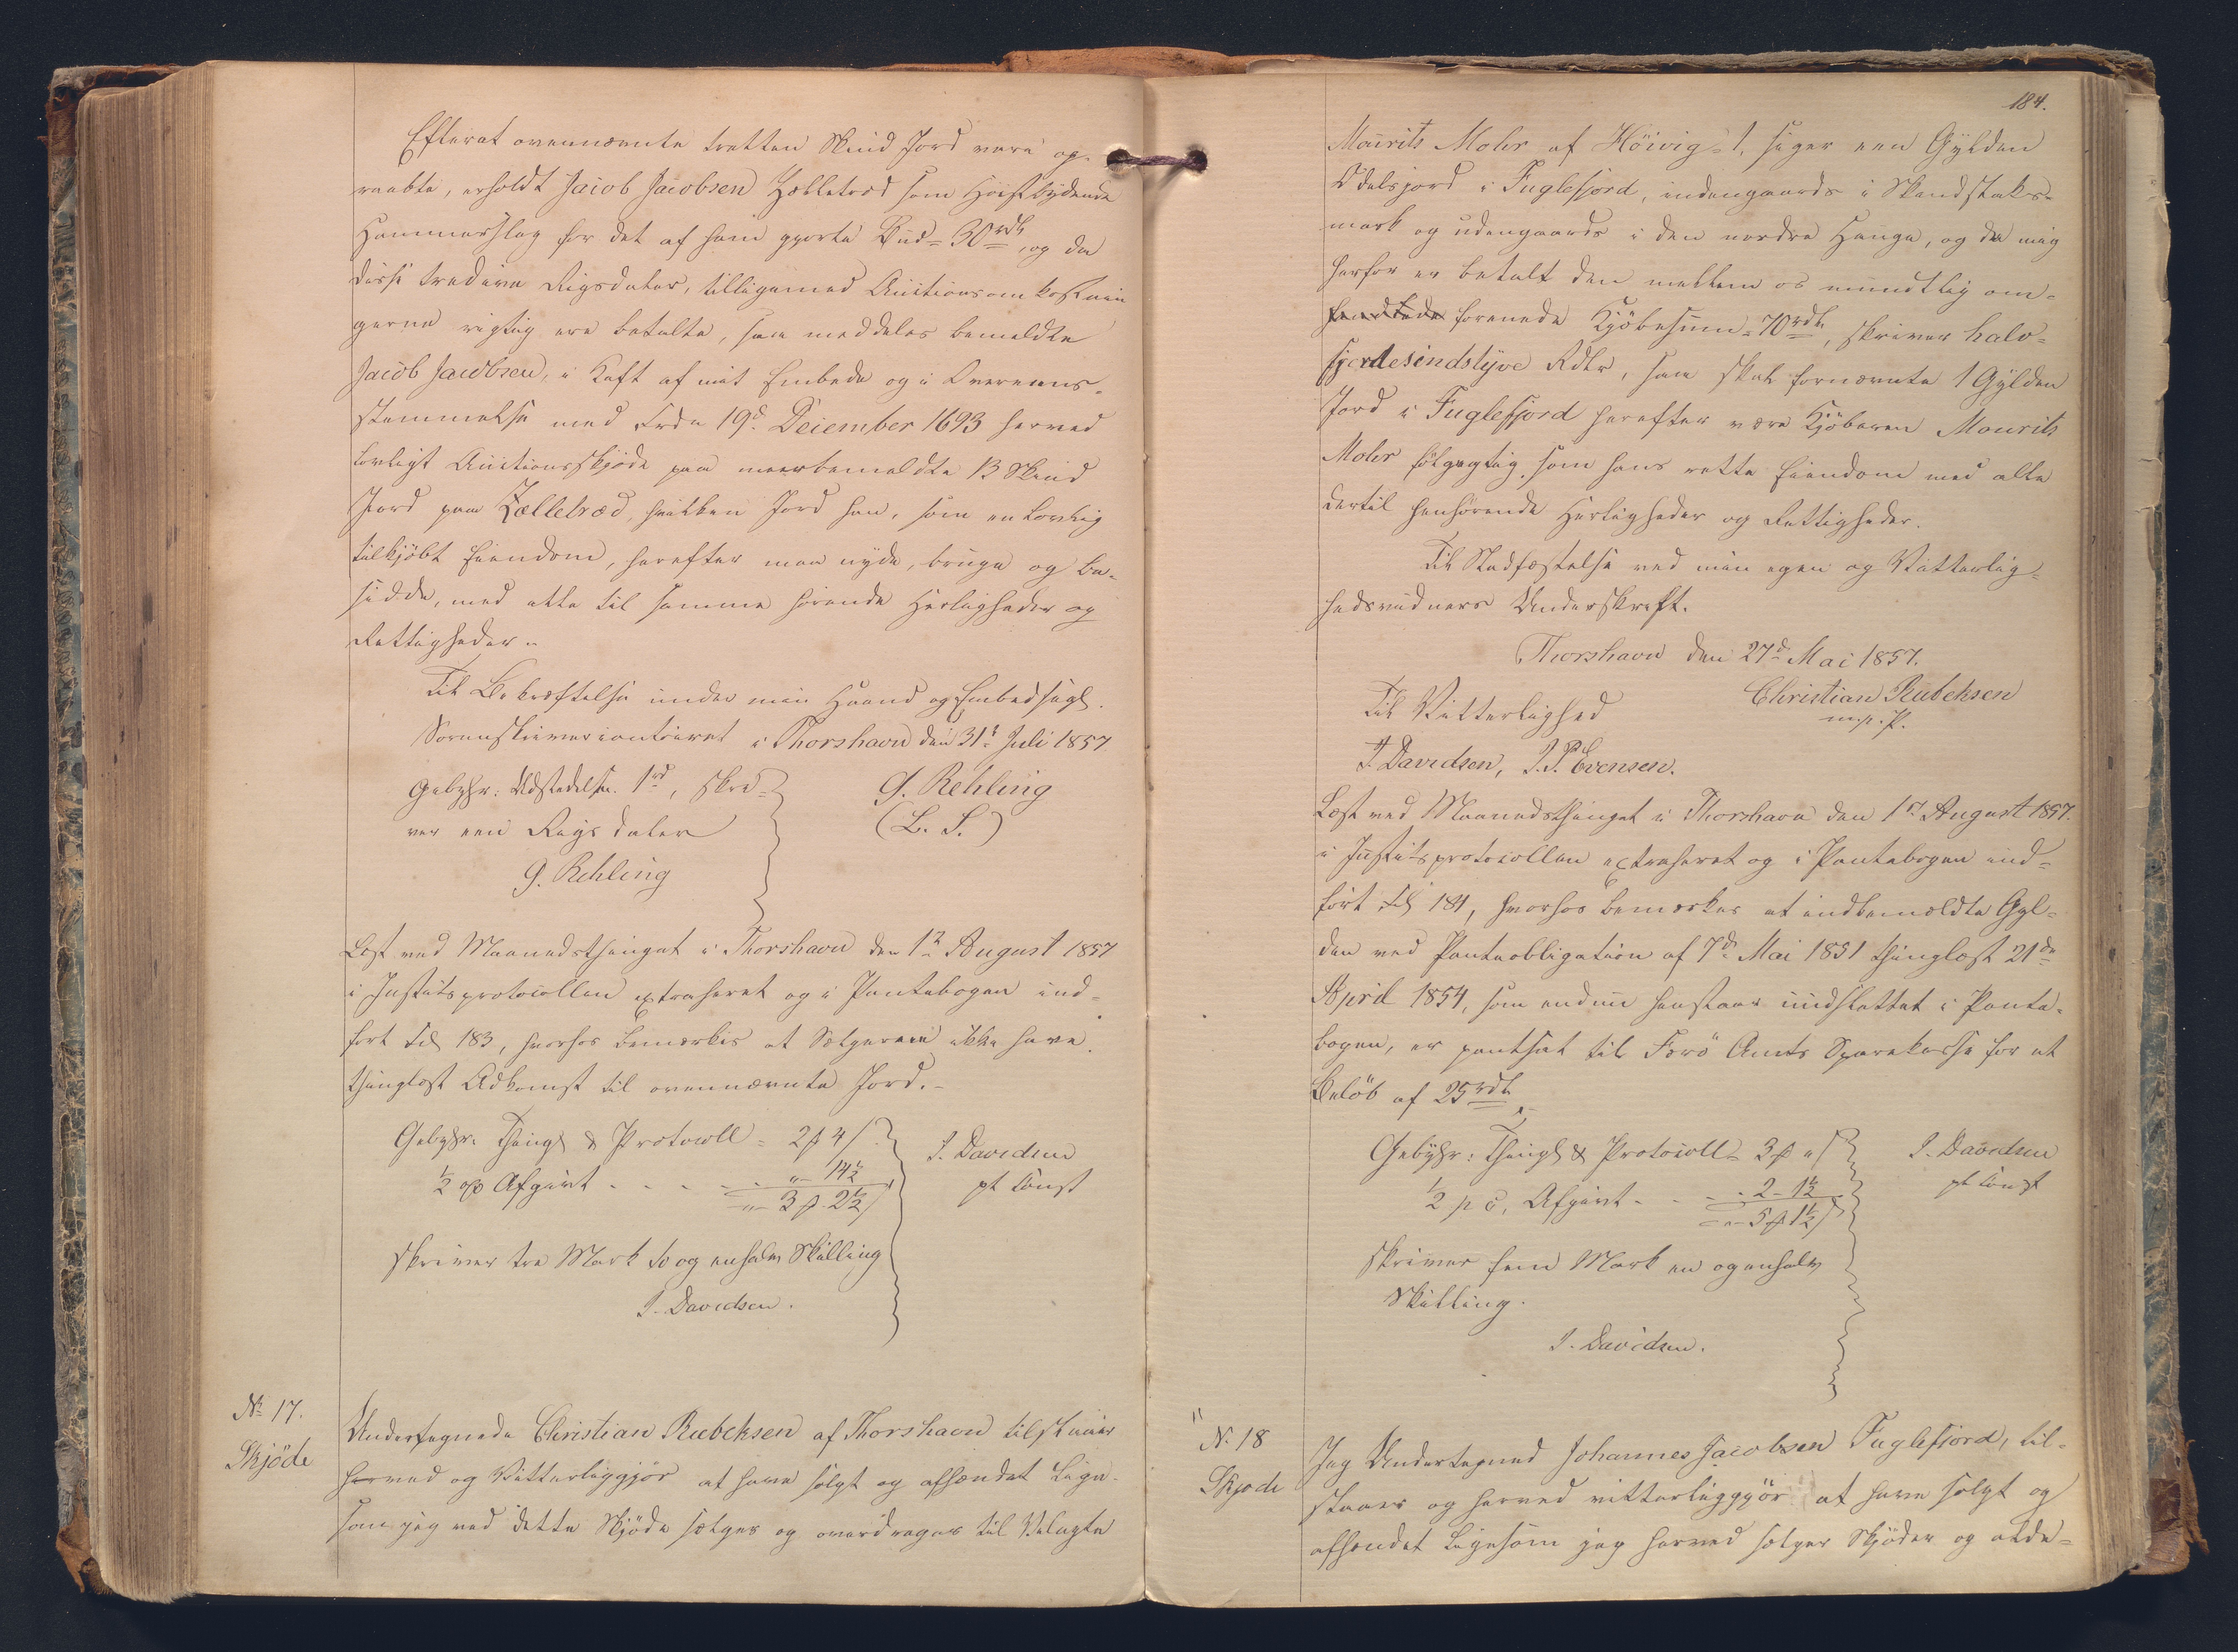 Efterat ovennævnte tretten Skind Jord vare op-
raabte, erholdt Jacob Jacobsen Zælletræd som Høistbydende
Hammerslag for det af ham gjorte Bud = 30 rdl, og da
disse tredive Rigsdaler, tilligemed Auctionsomkostnin
gerne rigtig ere betalte, saa meddeles bemeldte
Jacob Jacobsen, i Kraft af mit Embede og i Overeens-
stemmelse med Frdn 19d December 1693 herved
lovligt Auctionsskjöde paa meerbemeldte 13 Skind
Jord paa Zælletræd, hvilken Jord han, som en lovlig
tilkjöbt Eiendom, herefter maa nyde, bruge og be-
sidde, med alle til samme hörende Herligheder og
Rettigheder.
Til Bekræftelse under min Haand og Embedsegl.
Sorenskrivercontoiret i Thorshavn den 31t Juli 1857
Gebyhr: Udstedelsen 1rd, skri-
ver een Rigsdaler
G. Rehling
(L. S.)
G. Rehling
Læst ved Maanedsthinget i Thorshavn den 1ste August 1857
i Justitsprotocollen extraheret og i Pantebogen ind-
fört Fol 183, hvorhos bemærkes at Sælgeren ikke have
thinglæst Adkomst til ovennævnte Jord.-
Gebyhr. Thingl & Protocoll = 2 ß 4 /
1/2 op Afgivt - - - - " - 14 1/2
" - 3 ß 2 1/2 /
J. Davidsen
pt const
skriver tre Mark to og enhalv Skilling
J. Davidsen.
No 17.
Skjöde
Undertegnede Christian Rubeksen af Thorshavn tilstaaer
herved og Vitterliggjör at have solgt og afhændet lige-
som jeg ved dette Skjöde sælger og overdrager til Velagte
184.
Maurits Mohr af Höivig = 1, siger een Gylden
Odelsjord i Fuglefjord, indengaards i Skindstaks-
mark og udengaards i den nordre Hauge, og da mig
herfor er betalt den mellem os mundtlig om-
forenede Kjöbesum = 70 rdl, skriver halv-
fjerdesindstyve Rdlr, saa skal fornævnte 1 Gylden
Jord i Fuglefjord herefter være Kjöberen Maurits
Mohr fölgagtig som hans rette Eiendom med alle
dertil henhörende Herligheder og Rettigheder.
Til Stadfæstelse ved min egen og Vitterlig-
hedsvidners Underskrift.
Thorshavn den 27d Mai 1857.
Christian Rubeksen
m. p. P.
Til Vitterlighed
J. Davidsen, J. P. Evensen.
Læst ved Maanedsthinget i Thorshavn den 1st August 1857.
i Justitsprotocollen extraheret og i Pantebogen ind-
fört Fol 184, hvorhos bemærkes at indbemeldte Gyl-
den ved Panteobligation af 7de Mai 1851 thinglæst 21de
April 1854, som endnu henstaaer uudslettet i Pante-
bogen, er pantsat til Færö Amts Sparekasse for et
Belöb af 25 rdl
Gebyhr: Thingl & Protocoll = 3 ß " /
1/2 p c. Afgivt - - - - 2 - 1 1/2
" - 5 ß 1 1/2 /
J. Davidsen
pt const
skriver fem Mark en og enhalv
Skilling.
J. Davidsen.
"
No 18
Skjöde
Jeg Undertegned Johannes Jacobsen Fuglefjord, til-
staaer og herved vitterliggjör at have solgt og
afhændet ligesom jeg herved sælger Skjöder og alde-